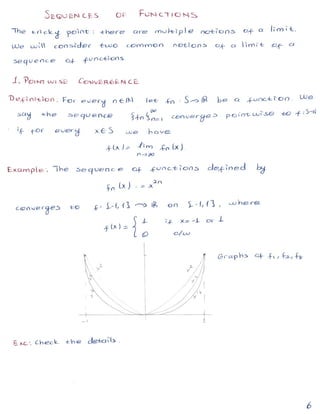 SEQUENCES OF FUNCTIONS
The tricky point : there are multiple notions of a limit.
We will consider two common notions of a limit of a
sequence of functions
1. POINTWISE CONVERGENCE
Definition: For every n∈ℕ let fn : S→ℝ be a function. We
say the sequence {fn}∞n=1 converges pointwise to f:S→ℝ
if for every x∈S we have
f(x) = lim fn(x).
n→∞
Example: The sequence of functions defined by
fn(x) := x²ⁿ
converges to f: [-1,1] → ℝ on [-1,1], where
f(x) = { 1 if x=-1 or 1
0 o/w
Graphs of f1, f2, f3
-1 1
Exc: Check the details.
6